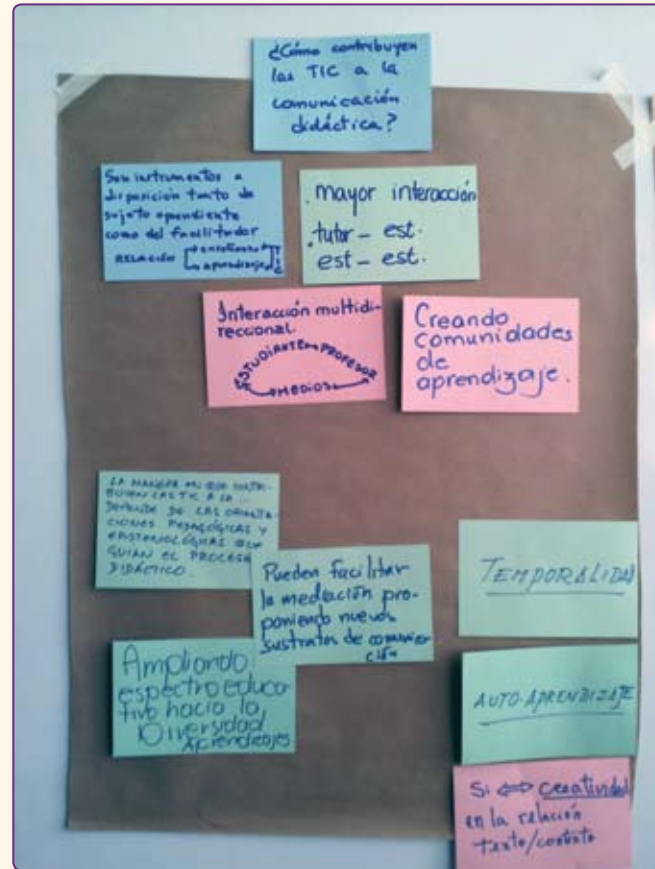 ¿Cómo contribuyen
las TIC a la
comunicación
didáctica?
Son instrumentos a
disposición tanto de
sujeto aprendiente
como del facilitador
RELACIÓN enseñanza
aprendizaje
. mayor interacción
. tutor - est.
est - est.
Interacción multidi-
reccional.
ESTUDIANTE PROFESOR
MEDIOS
Creando
comunidades
de
aprendizaje.
LA MANERA EN QUE CONTRI-
BUYEN LAS TIC A LA ...
DEPENDE DE LAS ORIENTA-
CIONES PEDAGÓGICAS Y
EPISTEMOLÓGICAS QUE
GUIAN EL PROCESO
DIDÁCTICO.
Pueden facilitar
la mediación pro-
poniendo nuevos
sustratos de comunica-
ción
TEMPORALIDAD
Ampliando
espectro educa-
tivo hacia la
Diversidad
Aprendizajes
AUTO-APRENDIZAJE
Si ⇔ creatividad
en la relación
texto/contexto